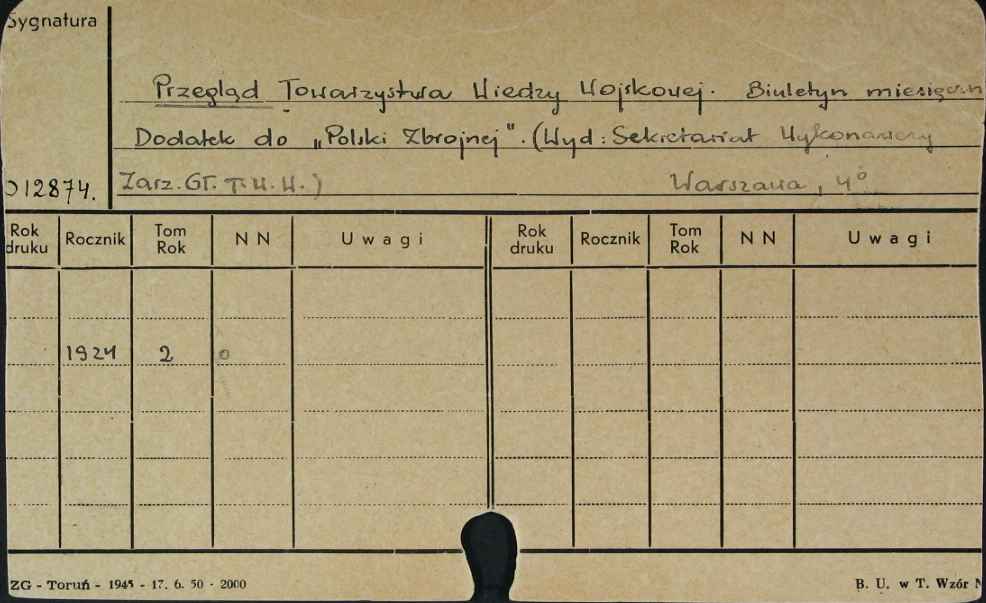 Sygnatura
Przegląd Towarzystwa Wiedzy Wojskowej. Biuletyn
Dodatek do „Polski Zbrojnej". (Wyd: Sekretariat Wykonawczy
Zarz. Gł. T. W. W.) Warszawa, 4°
012874.
Rok druku Rocznik Tom Rok NN Uwagi Rok druku Rocznik Tom Rok NN Uwagi
1924 2 0
ZG - Toruń - 1945 - 17. 6. 50 - 2000 B. U. w T. Wzór